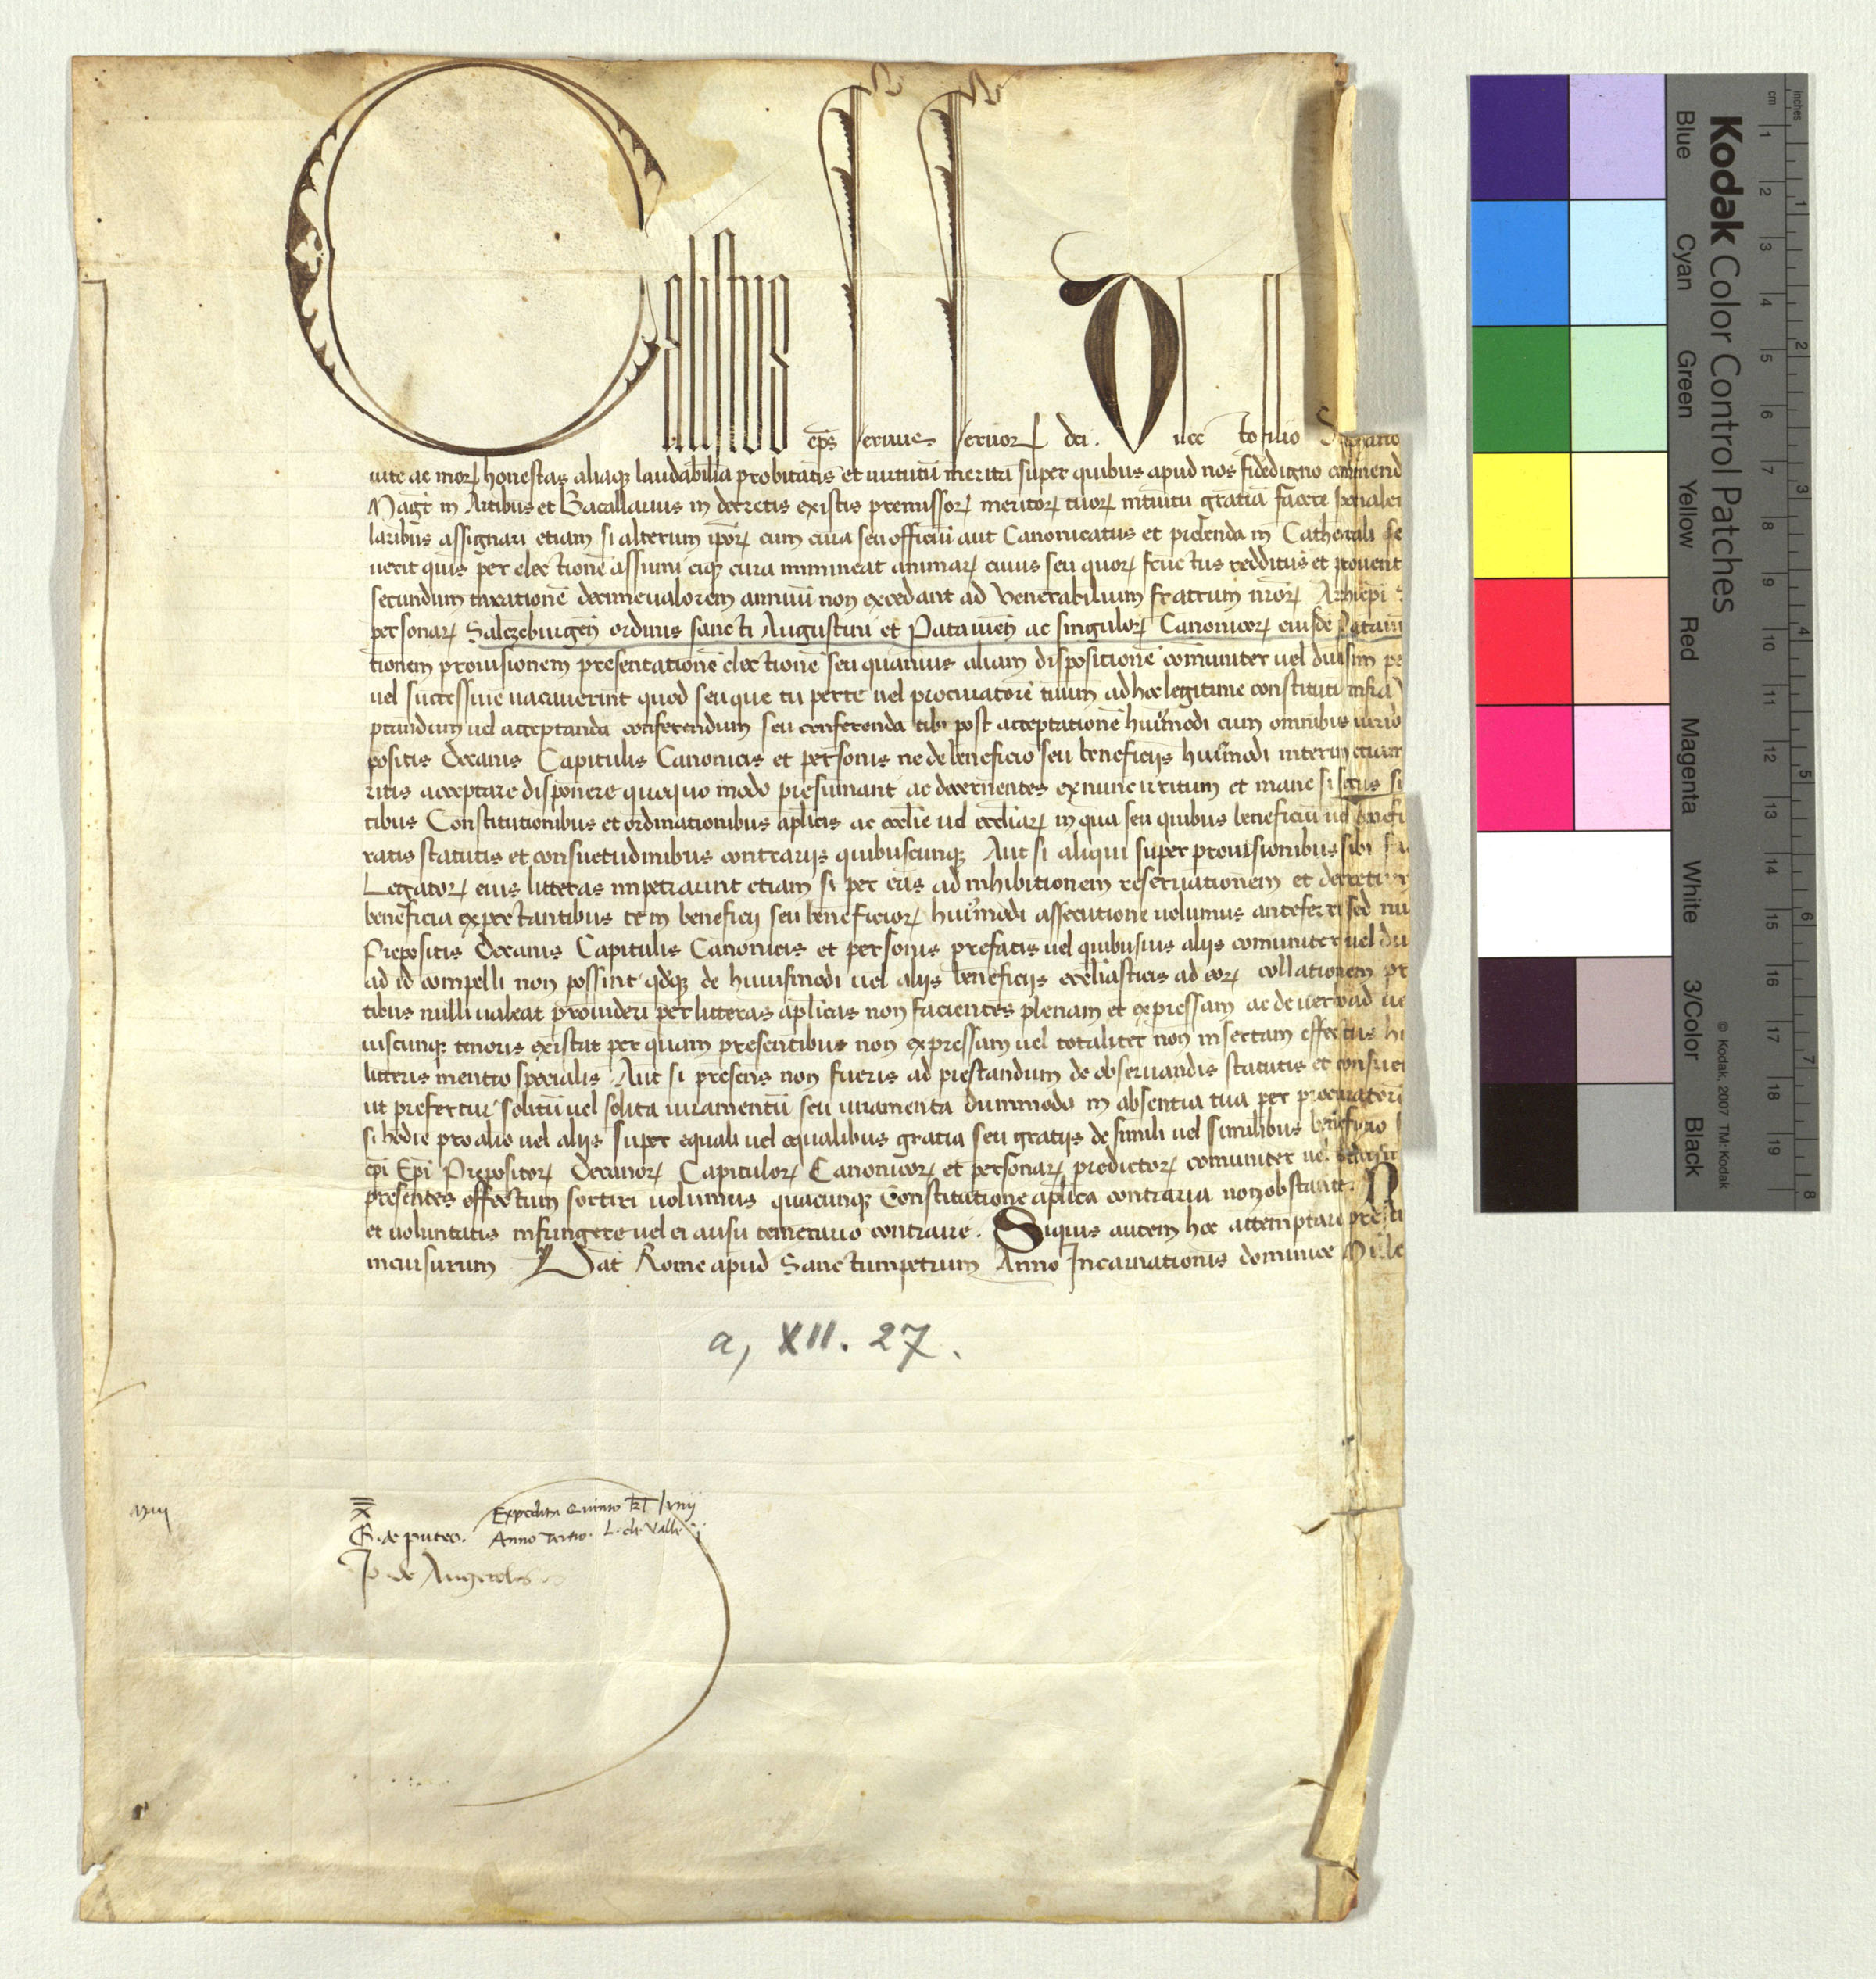 Calistus ep̄s seruus seruoꝝ dei. Dilecto filio
uite ac moꝝ honestas aliaqꝫ laudabilia probitatis et uirtutū merita super quibus apud nos fidedigno commend
Magr̄ in Artibus et Bacallarius in decretis existis premissoꝝ meritoꝝ tuoꝝ intuitu gratiā facere specialem
laribus assignari etiam si alterum ipoꝝ cum cura seu officiū aut Canonicatus et prebenda in Cathedrali
uerit quis per electionē assumi eiqꝫ cura immineat animaꝝ cuius seu quoꝝ fructus redditus et prouent
secundum taxationē decime ualorem annuū non excedant ad Venerabilium fratrum nr̄oꝝ Archiepī
personaꝝ Salczeburgeñ ordinis sancti Augustini et Patauieñ ac singuloꝝ Canonicoꝝ eiusdē Pataui
tionem prouisionem presentationē electionē seu quamuis aliam dispositionē comūniter uel diuisim pe
uel successiue uacauerint quod seu que tu per te uel procuratorē tuum ad hoc legitime constitutū infra
ptandum uel acceptanda conferendum seu conferenda tibi post acceptationē huiūmodi cum omnibus iurib
positis Decanis Capitulis Canonicis et personis ne de beneficio seu beneficijs huiūmodi interim etiam
ritis acceptare disponere quoquo modo presumant ac decernentes exnunc irritum et inane si secus si
tibus Constitutionibus et ordinationibus aplīcis ac ecclīe uel ecclīaꝝ in qua seu quibus beneficiū uel benefi
ratis statutis et consuetudinibus contrarijs quibuscunqꝫ Aut si aliqui super prouisionibus sibi
Legatoꝝ eius litteras impetrarint etiam si per eas ad inhibitionem reseruationem et decretum
beneficia expectantibus te in beneficij seu beneficioꝝ huiūmodi assecutione uolumus anteferri sed nu
Prepositis Decanis Capitulis Canonicis et personis prefatis uel quibusuis alijs comuniter uel diu
ad id compelli non possint qdqꝫ de huiusmodi uel alijs beneficijs ecclīasticis ad eoꝝ collationem pr
tibus nulli ualeat prouideri per litteras aplīcas non facientes plenam et expressam ac de uerbo ad ue
iuscunqꝫ tenoris existat per quam presentibus non expressam uel totaliter non insertam effectus hu
litteris mentio specialis Aut si presens non fueris ad prestandum de obseruandis statutis et consuet
ut prefertur solitū uel solita iuramentū seu iuramenta dummodo in absentia tua per procuratorē
si hodie pro alio uel alijs super equali uel equalibus gratia seu gratijs de simili uel similibus beneficio
epī Epī Prepositoꝝ Decanoꝝ Capituloꝝ Canonicoꝝ et personaꝝ predictoꝝ comuniter uel
presentes effectum sortiri uolumus quacunqꝫ Constitutione aplīca contraria non obstante. N
et uoluntatis infringere uel ei ausu temerario contraire. Siquis autem hoc attemptare presu
incursurum Dat̄ Rome apud Sanctumpetrum Anno Incarnationis dominice Mille
a, XII. 27.
x̄
G. de puteo.
Expedita Quinto kl̄ Junij
Anno Tertio. L. de Valle
Jo de Angerolis
Kodak Color Control Patches
Blue Cyan Green Yellow Red Magenta White 3/Color Black
© Kodak, 2007 TM: Kodak
cm 1 2 3 4 5 6 7 8 9 10 11 12 13 14 15 16 17 18 19
inches 1 2 3 4 5 6 7 8